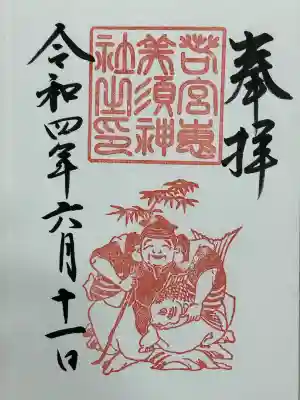 奉拝
若宮恵
美須神
社之印
令和四年六月十一日